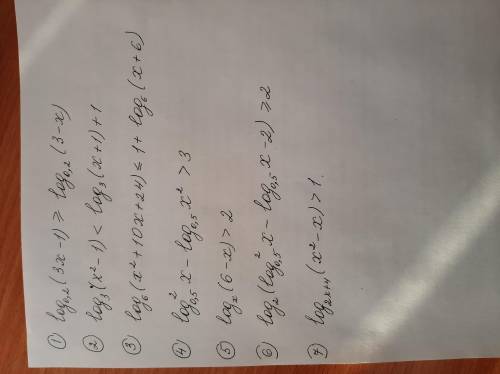 ① log₀,₂(3x-1) ≥ log₀,₂(3-x)
② log₃(x²-1) < log₃(x+1)+1
③ log₆(x²+10x+24) ≤ 1+log₆(x+6)
④ log²₀,₅ x - log₀,₅ x² > 3
⑤ logₓ(6-x) > 2
⑥ log₂(log²₀,₅ x - log₀,₅ x - 2) ≥ 2
⑦ log₂ₓ₊₄(x²-x) > 1.